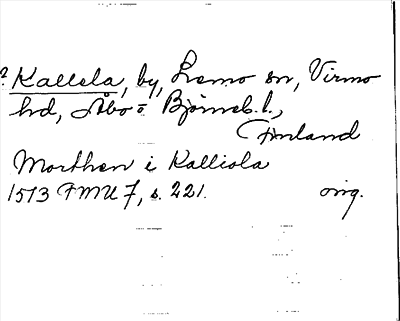 ? Kallela, by, Lemo sn, Virmo
hd, Åbo o Björneb. l.,
Finland
Morthen i Kalliola
1513 FMU 7, s. 221. orig.